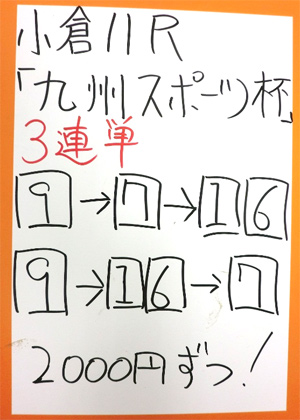 小倉11R
「九州スポーツ杯」
3連単
9→7→16
9→16→7
2000円ずつ!